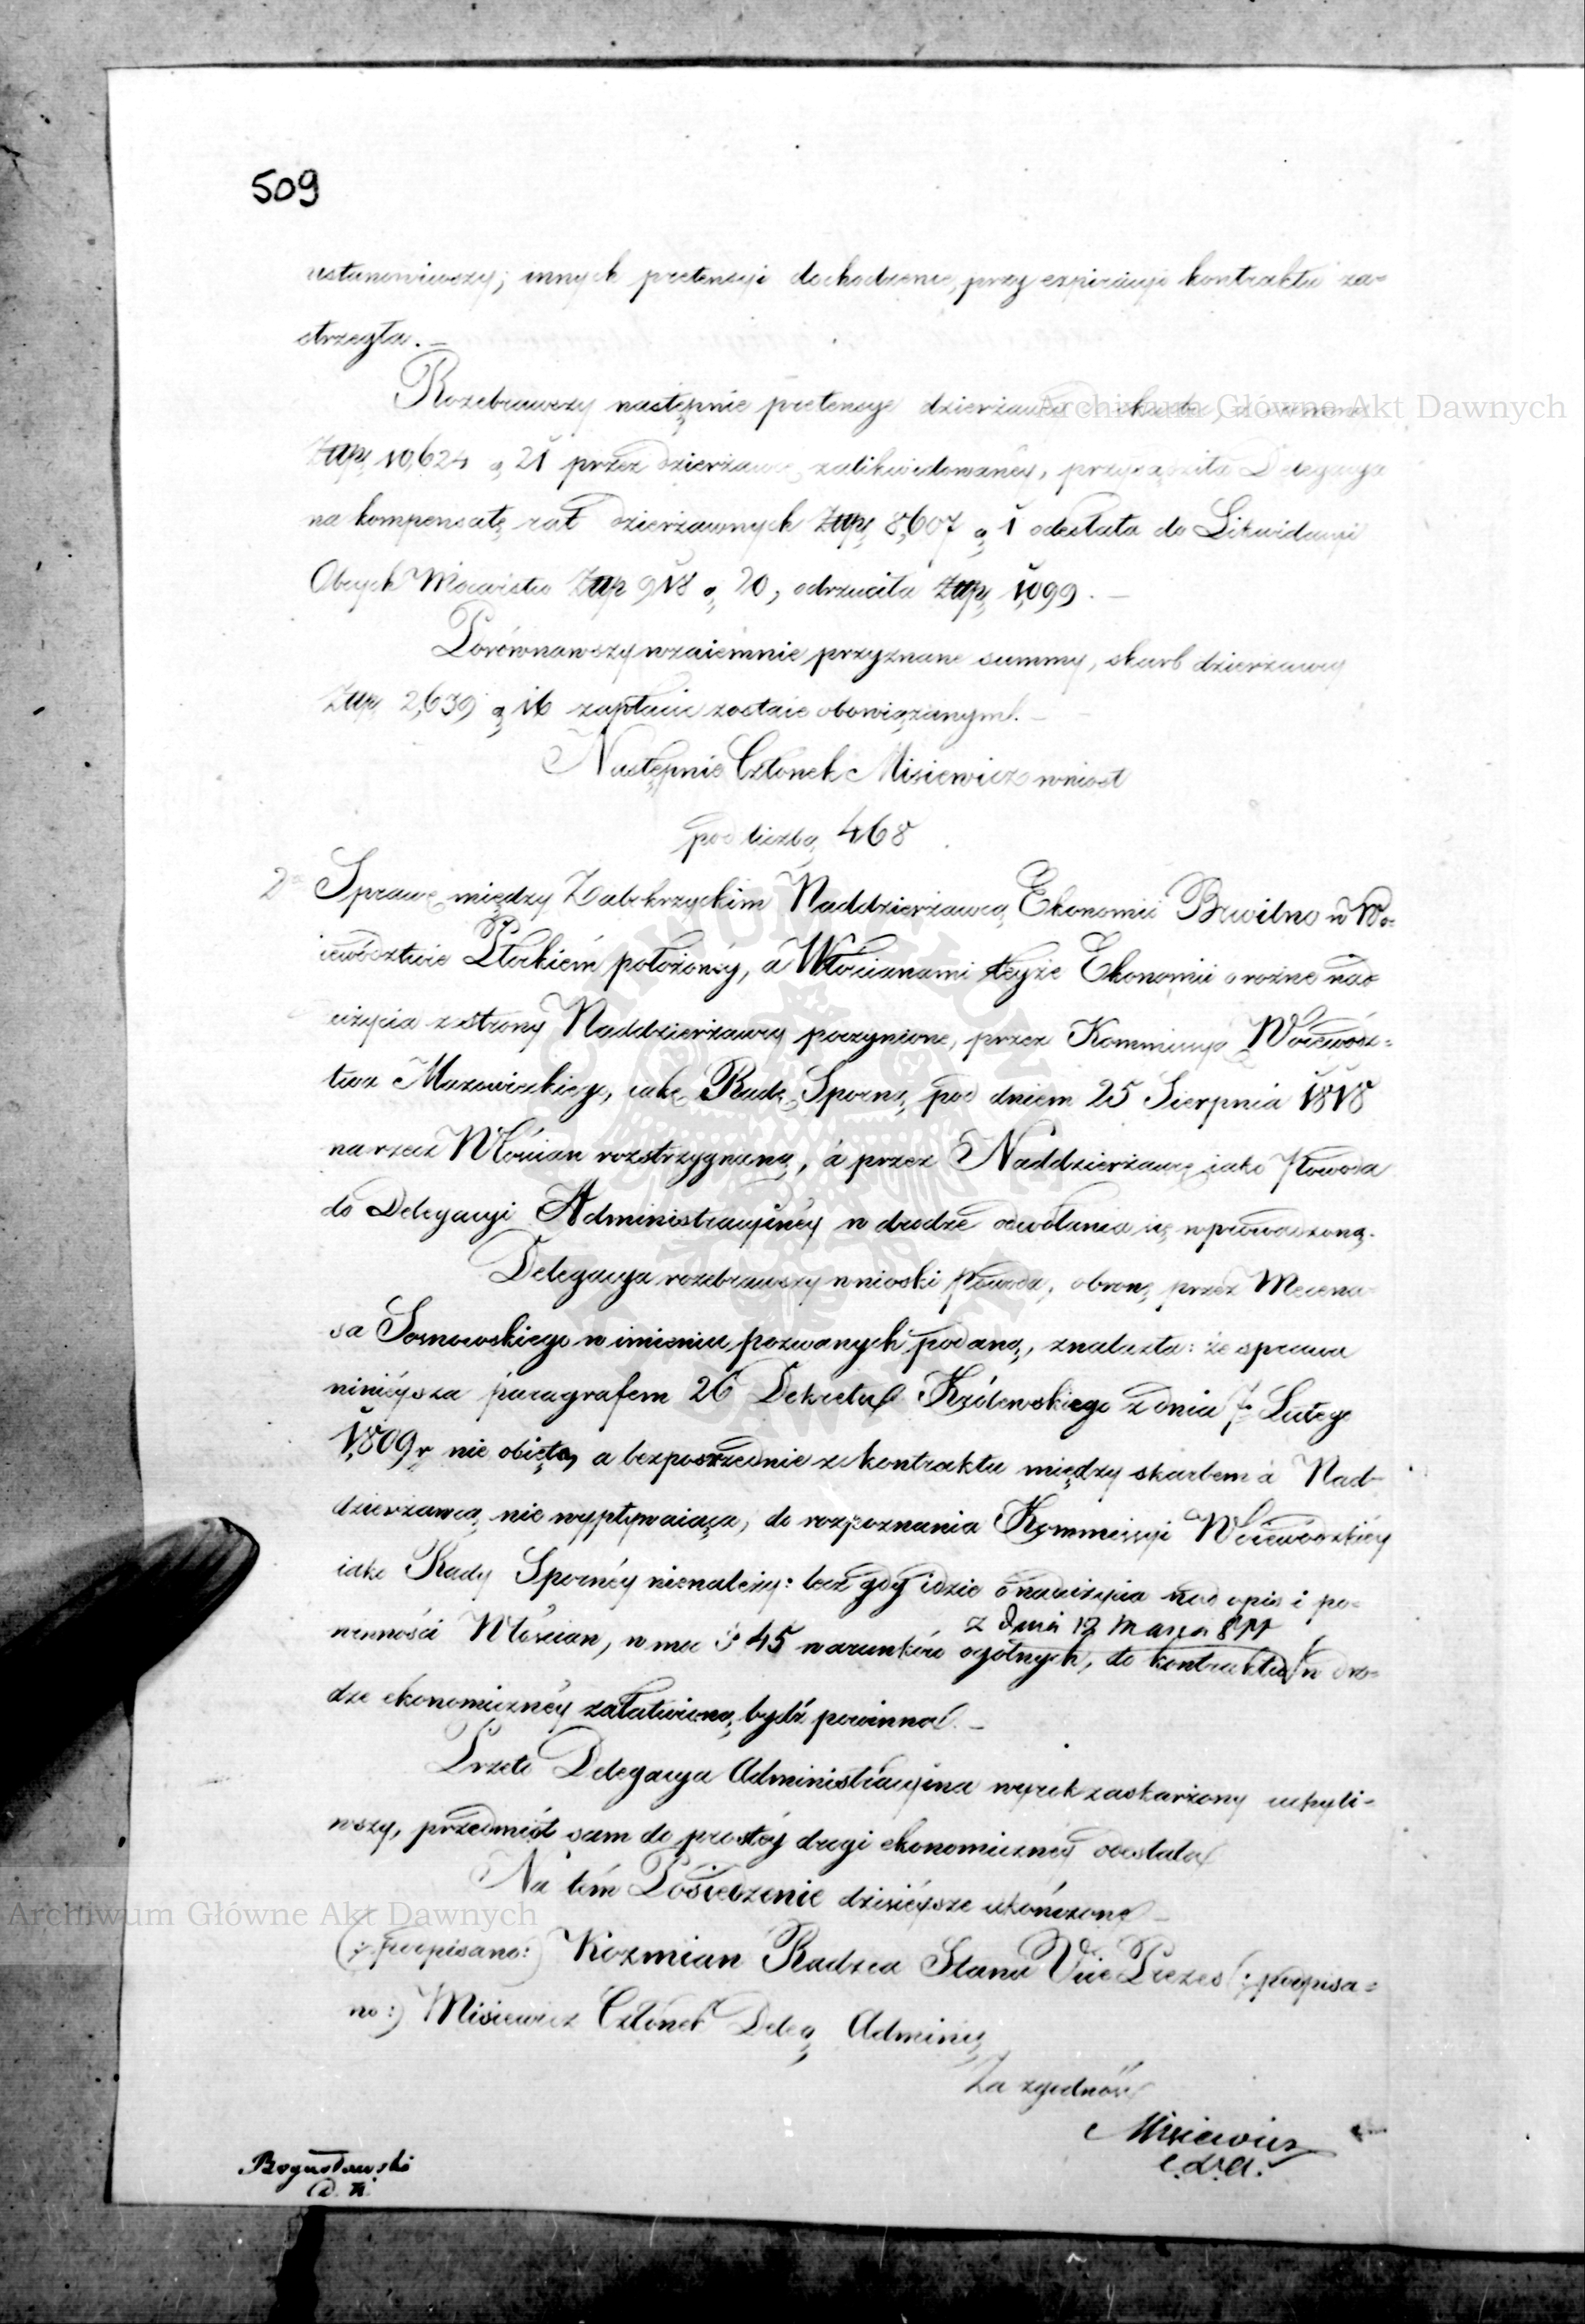 509
ustanowiwszy; innych pretensyi dochodzenie, przy expiracyi kontraktu za=
strzegła. —
Rozebrawszy następnie pretensye dzierżawcy
Złłp. 10,624 g 21 przez dzierżawcę zalikwidowanéy, Delegacya
na kompensatę rat dzierżawnych Złłp. 8,607 g 1 odesłała do Likwidacyi
Obcych Mocarstw Złłp 918 g 20, odrzuciła Złłp. 1,099. —
Porównawszy wzaiemnie przyznane summy, skarb dzierżawcy
Złłp. 2,639 g 16 zapłacić zostaie obowiązanym. —
Następnie Członek Misiewicz wniosł
pod liczbą 468
2° Sprawę między Zabokrzyckim Naddzierżawcą Ekonomii Brwilno w Wo=
iewództwie Płockiém położonéy, á Włościanami teyże Ekonomii o rożne nad
użycia z strony Naddzierżawcy poczynione, przez Kommissyą Woiewódz=
twa Mazowieckiego, iako Radę Sporną pod dniem 25 Sierpnia 1818
na rzecz Włościan rozstrzygnaną, á przez Naddzierżawcę iako Powoda
do Delegacyi Administracyinéy w drodze odwołania się wprowadzoną.
Delegacya rozebrawszy wnioski Powoda, obronę przez Mecena=
sa Sosnowskiego w imieniu pozwanych podaną, znalazła: że sprawa
ninieysza paragrafem 26 Dekretu Królewskiego z dnia 7° Lutego
1,809 r. nie obięta, a bezposrzednie z kontraktu między skarbem á Nad=
dzierżawcą nie wypływaiąca, do rozpoznania Kommissyi Woiewódzkiéy
iako Rady Spornéy nienależy: lecz gdy idzie o nadużycia nad opis i po=
z dnia 12 Marca 811
winności Włościan, w moc § 45 warunków ogólnych, do kontraktu w dro=
dze ekonomicznéy załatwioną bydź powinna. —
Przeto Delegacya Administracyina wyrok zaskarżony uchyli=
wszy, przedmiót sam do prostéy drogi ekonomicznéy odesłała
Na tém Posiedzenie dzisieysze ukończono —
(: podpisano:) Kozmian Radzca Stanu Vice Prezes (: podpisa=
no:) Misiewicz Członek Deleg Adminiey
Za zgodność
Misiewicz
C.D.A.
Bogusławski
Archiwum Główne Akt Dawnych
Archiwum Główne Akt Dawnych